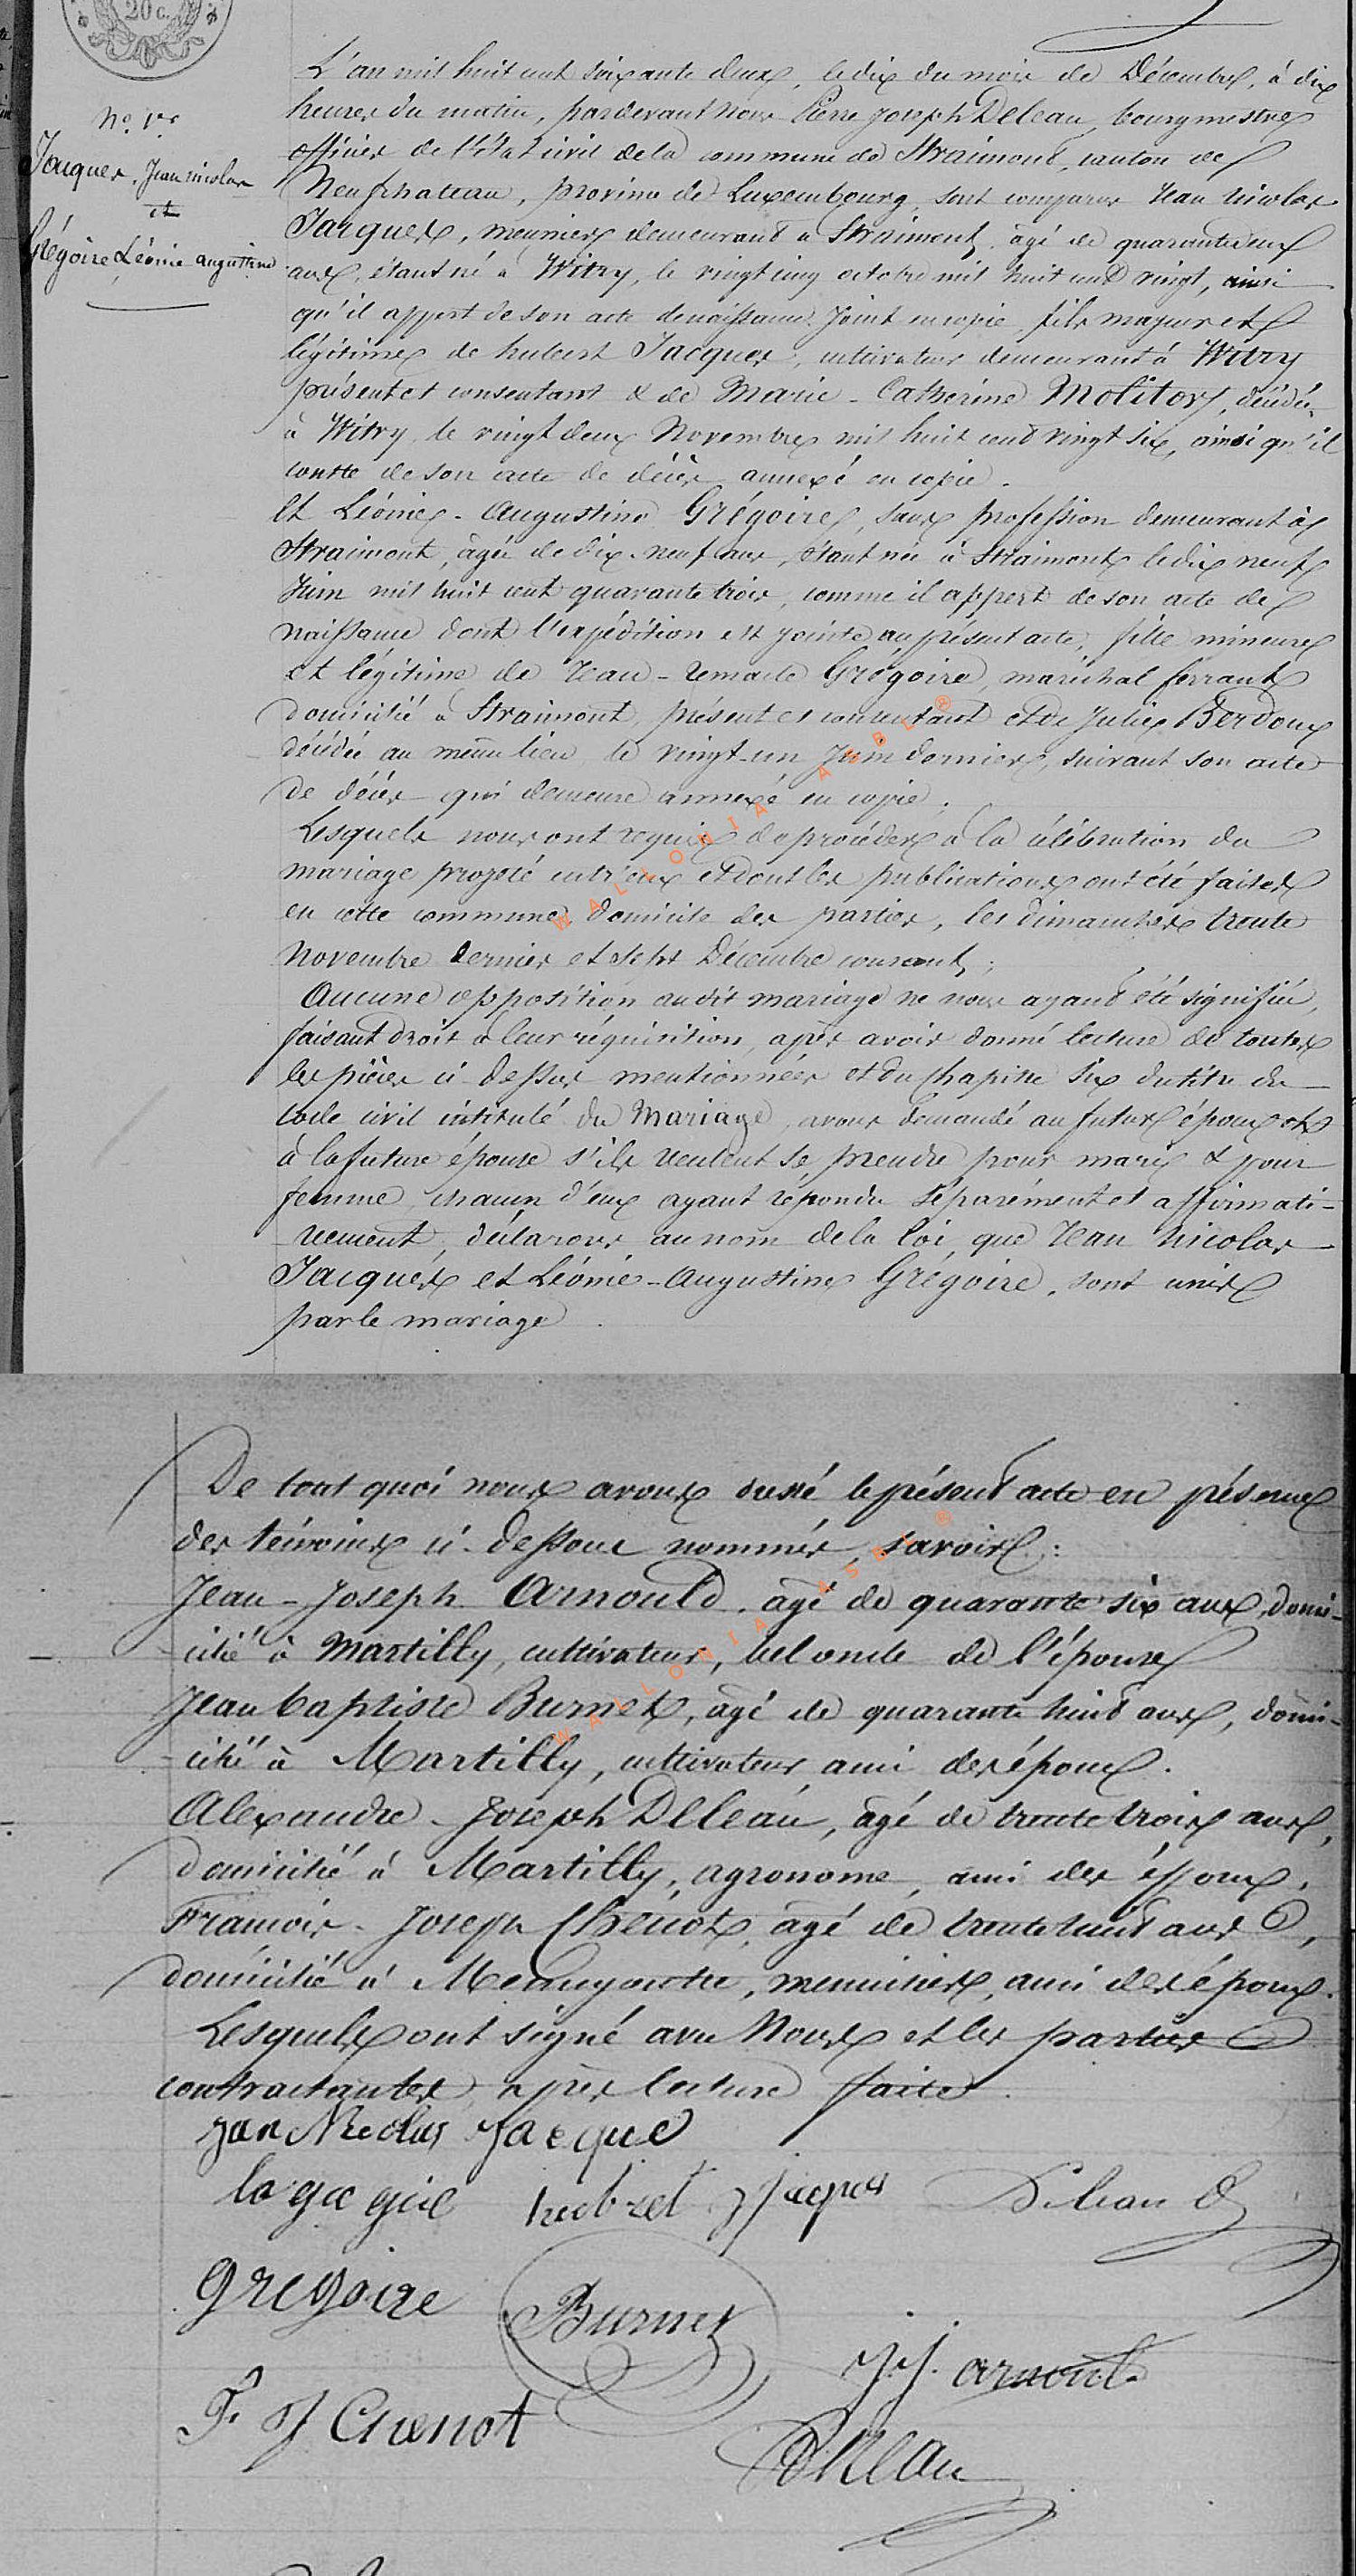 20 c.
No. 1er
Jacques, Jean nicolas
et
Grégoire Léonie augustine
L'an mil huit cent soixante deux, le dix du mois de Décembre, à dix
heures du matin, pardevant nous Pierre Joseph Deleau, bourgmestre
officier de l'état civil de la commune de Straimont, canton de
Neufchateau, province de Luxembourg, sont comparus Jean nicolas
Jacques, meunier demeurant à Straimont, âgé de quarante deux
ans, étant né à Witry, le vingt cinq octobre mil huit cent vingt, ainsi
qu'il appert de son acte de naissance joint en copie, fils majeur et
légitime de hubert Jacques, cultivateur demeurant à Witry
présent et consentant & de Marie - Catherine Molitor, décédée
à Witry, le vingt deux Novembre mil huit cent vingt six, ainsi qu'il
conste de son acte de décès annexé en copie.
Et Léonie - Augustine Grégoire, sans profession demeurant à
Straimont, âgée de dix-neuf ans, étant née à Straimont le dix neuf
Juin mil huit cent quarante trois, comme il appert de son acte de
naissance dont l'expédition est jointe au présent acte, fille mineure
et légitime de Jean - remacle Grégoire, maréchal ferrant
domicilié à Straimont, présent et consentant et de Julie Berdoux
décédée au même lieu le vingt-un Juin dernier, suivant son acte
de décès qui demeure annexé en copie.
Lesquels nous ont requis de procéder à la célébration du
mariage projeté entr'eux et dont les publications ont été faites
en cette commune domicile des parties, les dimanches trente
Novembre dernier et sept Décembre courant;
Aucune opposition audit mariage ne nous ayant été signifiée,
faisant droit à leur réquisition, après avoir donné lecture de toutes
les pièces ci-dessus mentionnées et du chapitre six du titre du
code civil intitulé du Mariage, avons demandé au futur époux et
à la future épouse s'ils veulent se prendre pour mari & pour
femme, chacun d'eux ayant répondu séparément et affirmati-
-vement, déclarons au nom de la loi, que Jean nicolas
Jacques et Léonie-Augustine Grégoire, sont unis
par le mariage.
De tout quoi nous avons dressé le présent acte en présence
des témoins ci-dessous nommés, savoir:
Jean - Joseph Arnould, âgé de quarante six ans, domi-
-cilié à Martilly, cultivateur, bel oncle de l'épouse
Jean baptiste Burnet, âgé de quarante huit ans, domi-
-cilié à Martilly, cultivateur, ami des époux.
Alexandre - Joseph Deleau, âgé de trente trois ans,
domicilié à Martilly, agronome, ami des époux.
François - Joseph Chenot, âgé de trente huit ans,
domicilié à, menuisier, ami des époux.
Lesquels ont signé avec Nous et les parties
contractantes, après lecture faite.
Jan Nicolas Jacque
hubret Jacques Deleau
gregoire
Burnet
J.J. arnould
F. J Chenot
Deleau
WALLONIA ASBL ®
WALLONIA ASBL ®